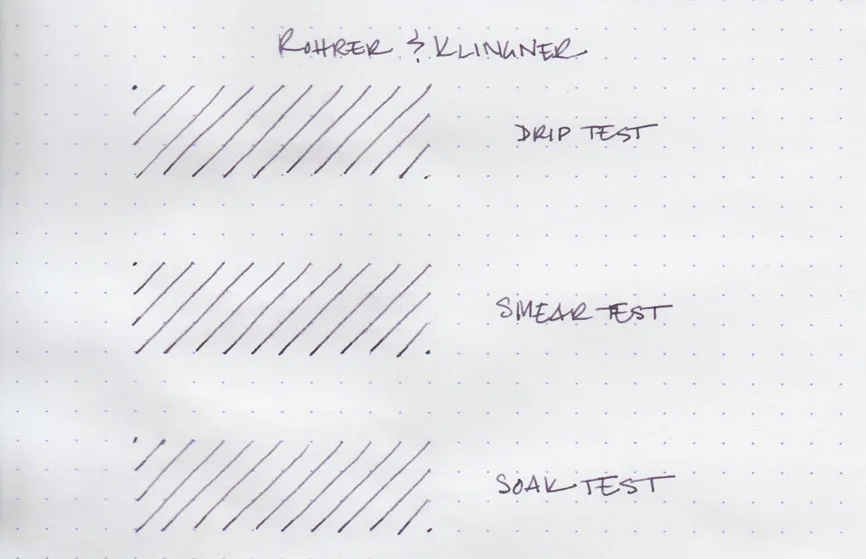 ROHRER & KLINGNER
DRIP TEST
SMEAR TEST
SOAK TEST